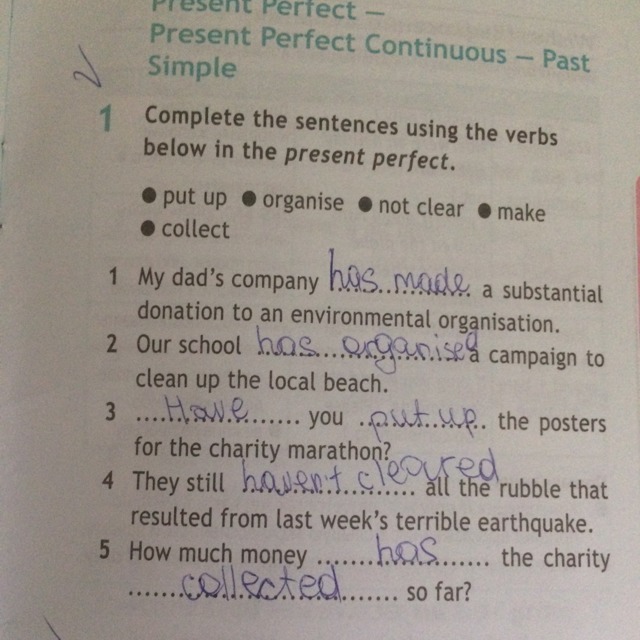 Present Perfect –
Present Perfect Continuous – Past
Simple
1 Complete the sentences using the verbs
below in the present perfect.
● put up ● organise ● not clear ● make
● collect
1 My dad's company has made a substantial
donation to an environmental organisation.
2 Our school has organised a campaign to
clean up the local beach.
3 ....Have....... you ..put up.. the posters
for the charity marathon?
4 They still haven't cleared all the rubble that
resulted from last week's terrible earthquake.
5 How much money .......has....... the charity
.......collected........ so far?